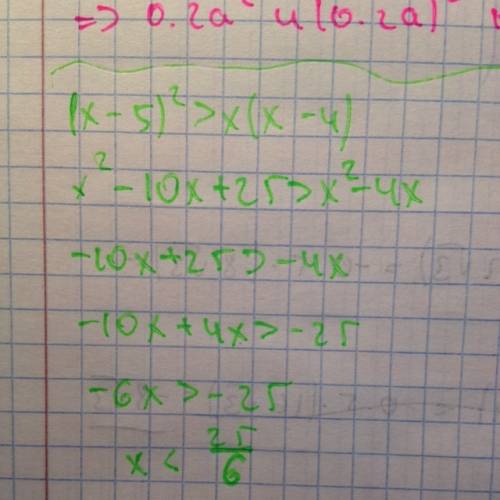 => 0.2a² и (0.2a)
(x - 5)² > x(x - 4)
x² - 10x + 25 > x² - 4x
-10x + 25 > -4x
-10x + 4x > -25
-6x > -25
x < 25/6